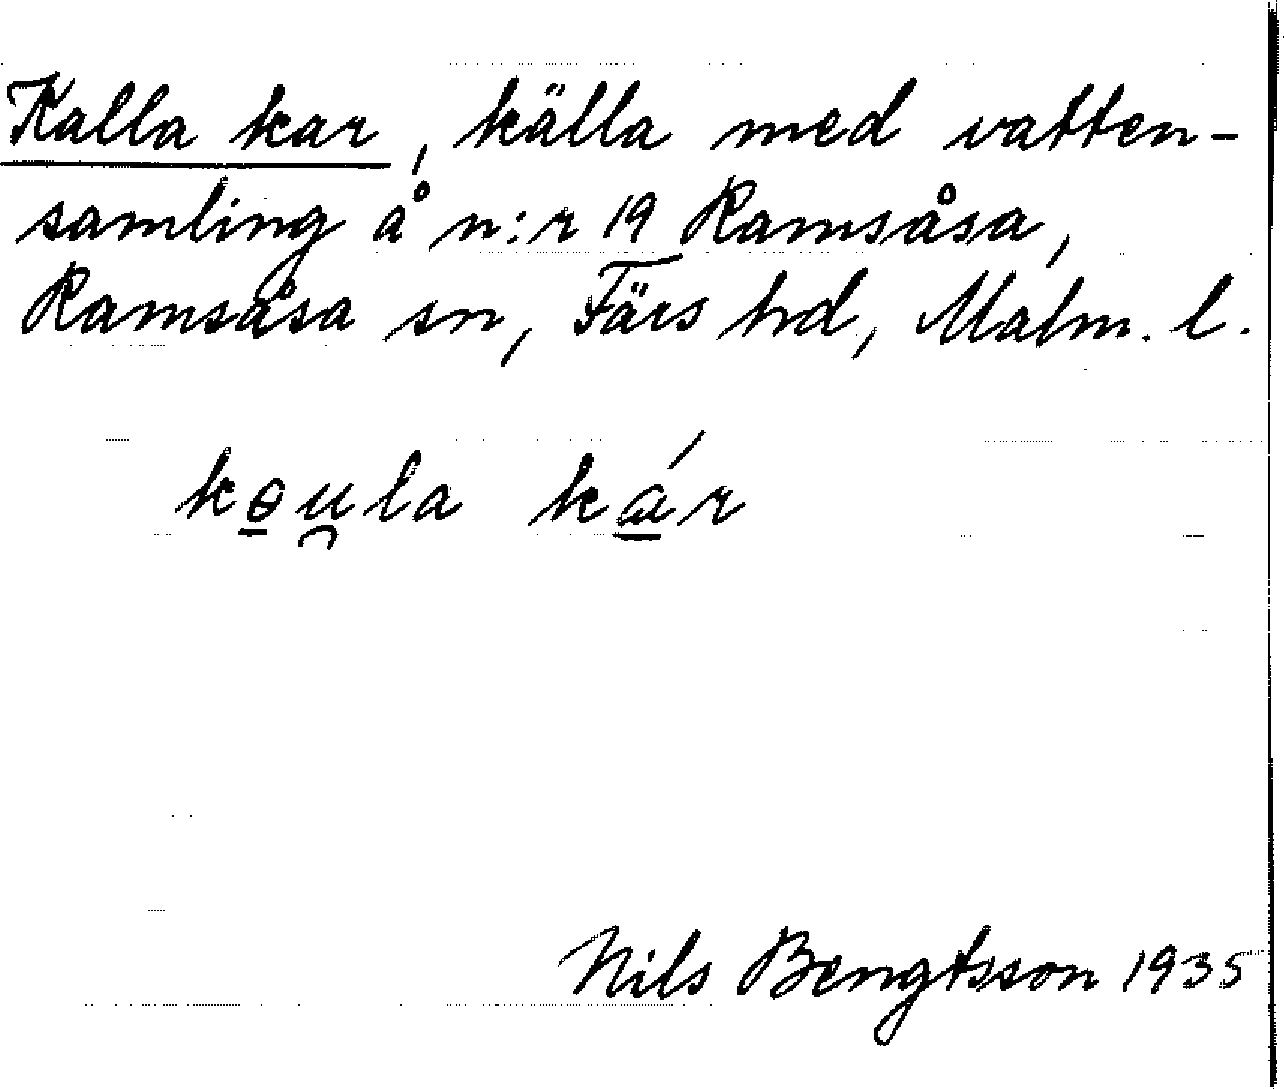 Kalla kar, källa med vatten-
samling å n:r 19 Ramsåsa,
Ramsåsa sn, Färs hd, Malm. l.
kɵu̯la kár
Nils Bengtsson 1935